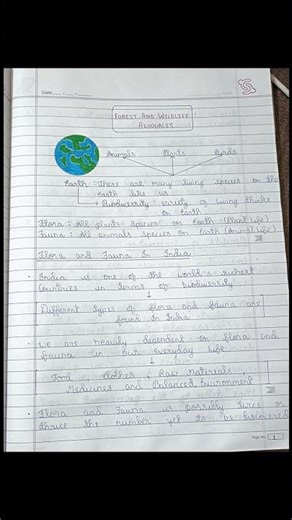 Date
FOREST AND WILDLIFE
RESOURCES
Animals Plants Birds
Earth : There are many living species on the
earth like us
Biodiversity : Variety of living things
on Earth
Flora : All plants species on Earth (Plant Life)
Fauna : All animals species on Earth (Animal Life)
Flora and Fauna In India
India is one of the world's richest
Countries in terms of biodiversity
Different types of flora and fauna are
found In India
We are heavily dependent on flora and
fauna in our everyday life
Food, Clothes, Raw Materials
Medicines and Balanced Environment
Flora and Fauna is possibly twice or
thrice the number yet to be discovered
Page No. 1